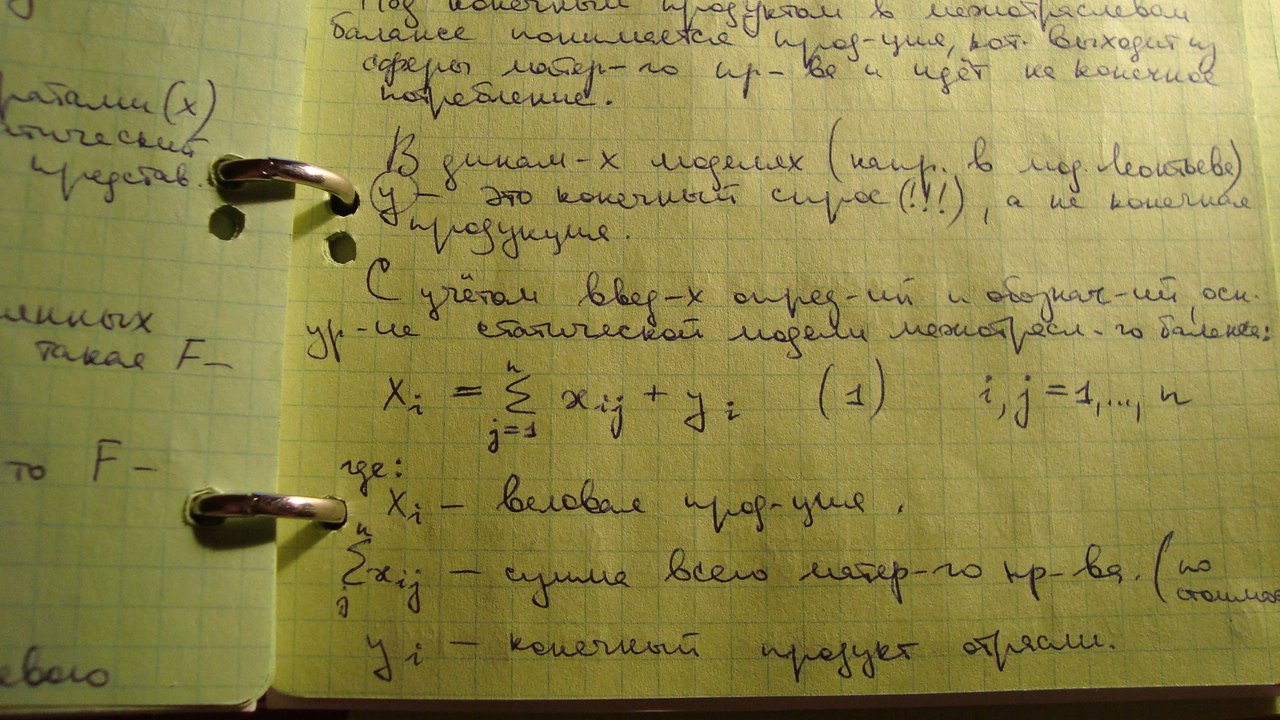 ратами (x)
атический
представ.
ленных
такая F –
то F –
евого
Под конечным продуктом в межотраслевом
балансе понимается прод-ция, кот. выходит из
сферы матер-го пр-ва и идёт на конечное
потребление.
В динам-х моделях (напр. в мод. Леонтьева)
y – это конечный спрос (!!!), а не конечная
продукция.
С учётом введ-х опред-ий и обознач-ий, осн.
ур-ие статической модели межотрасл-го баланса:
Xi = ∑ⁿⱼ₌₁ xij + yi (1) i, j = 1, ..., n
где:
Xi – валовая прод-ция.
∑ⁿⱼ xij – сумма всего матер-го пр-ва. (по
стоимос
yi – конечный продукт отрасли.